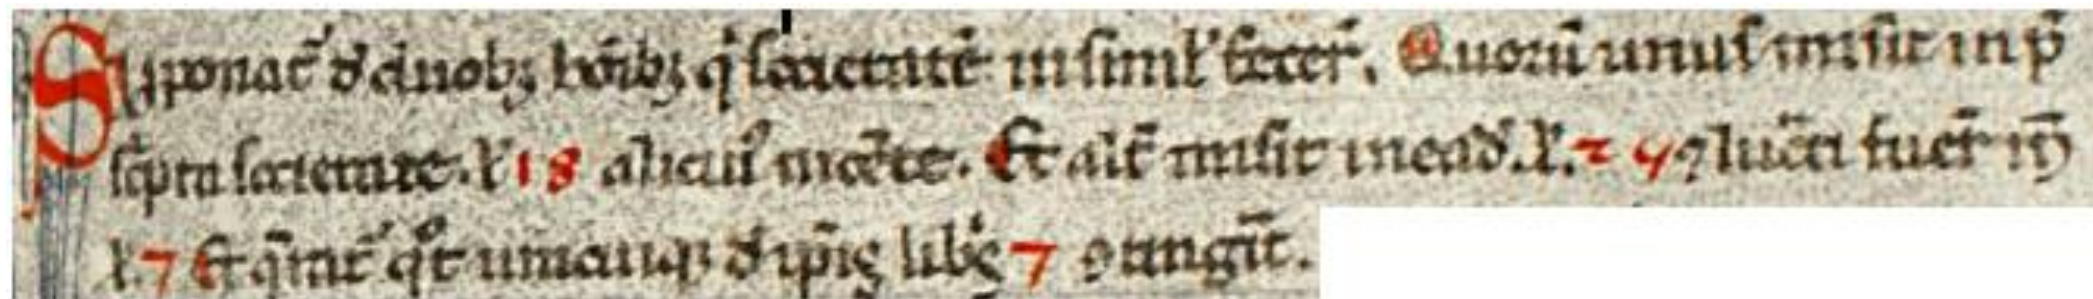 Sup̱ponat̉ d̉ duobꝫ ho̅ibꝫ qͥ societate̅ in simil̉ fecer̉. Quoru̅ unus misit in p̅
sc̉pta societate. l̉. 18 alicuiꝰ monete. Et alt̉ misit in ead̉. l̉. 24 ꝯlucͣti fuer̉ in̅
l̉. 7 Et q̅rit̉ qͦt unicuiqꝫ d̉ ip̅is libͥs 7 ꝯtingu̅t.